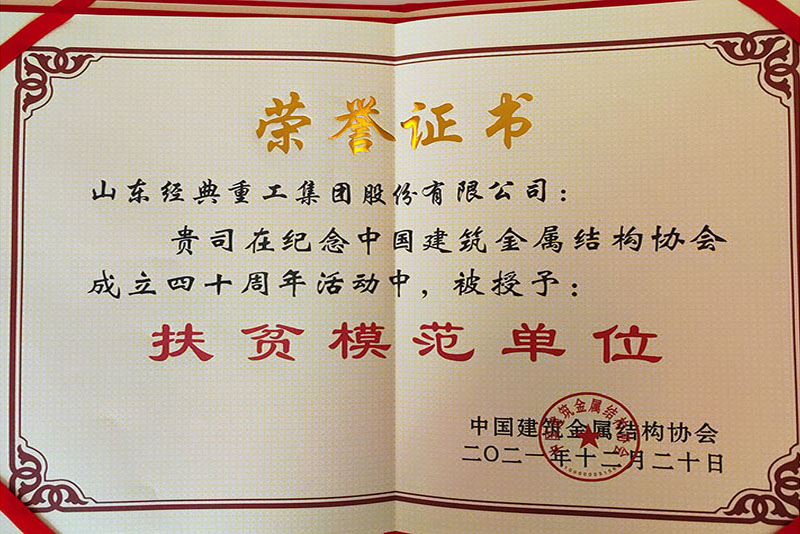 荣誉证书
山东经典重工集团股份有限公司：
贵司在纪念中国建筑金属结构协会
成立四十周年活动中，被授予：
扶贫模范单位
中国建筑金属结构协会
二〇二一年十二月二十日
中国建筑金属结构协会